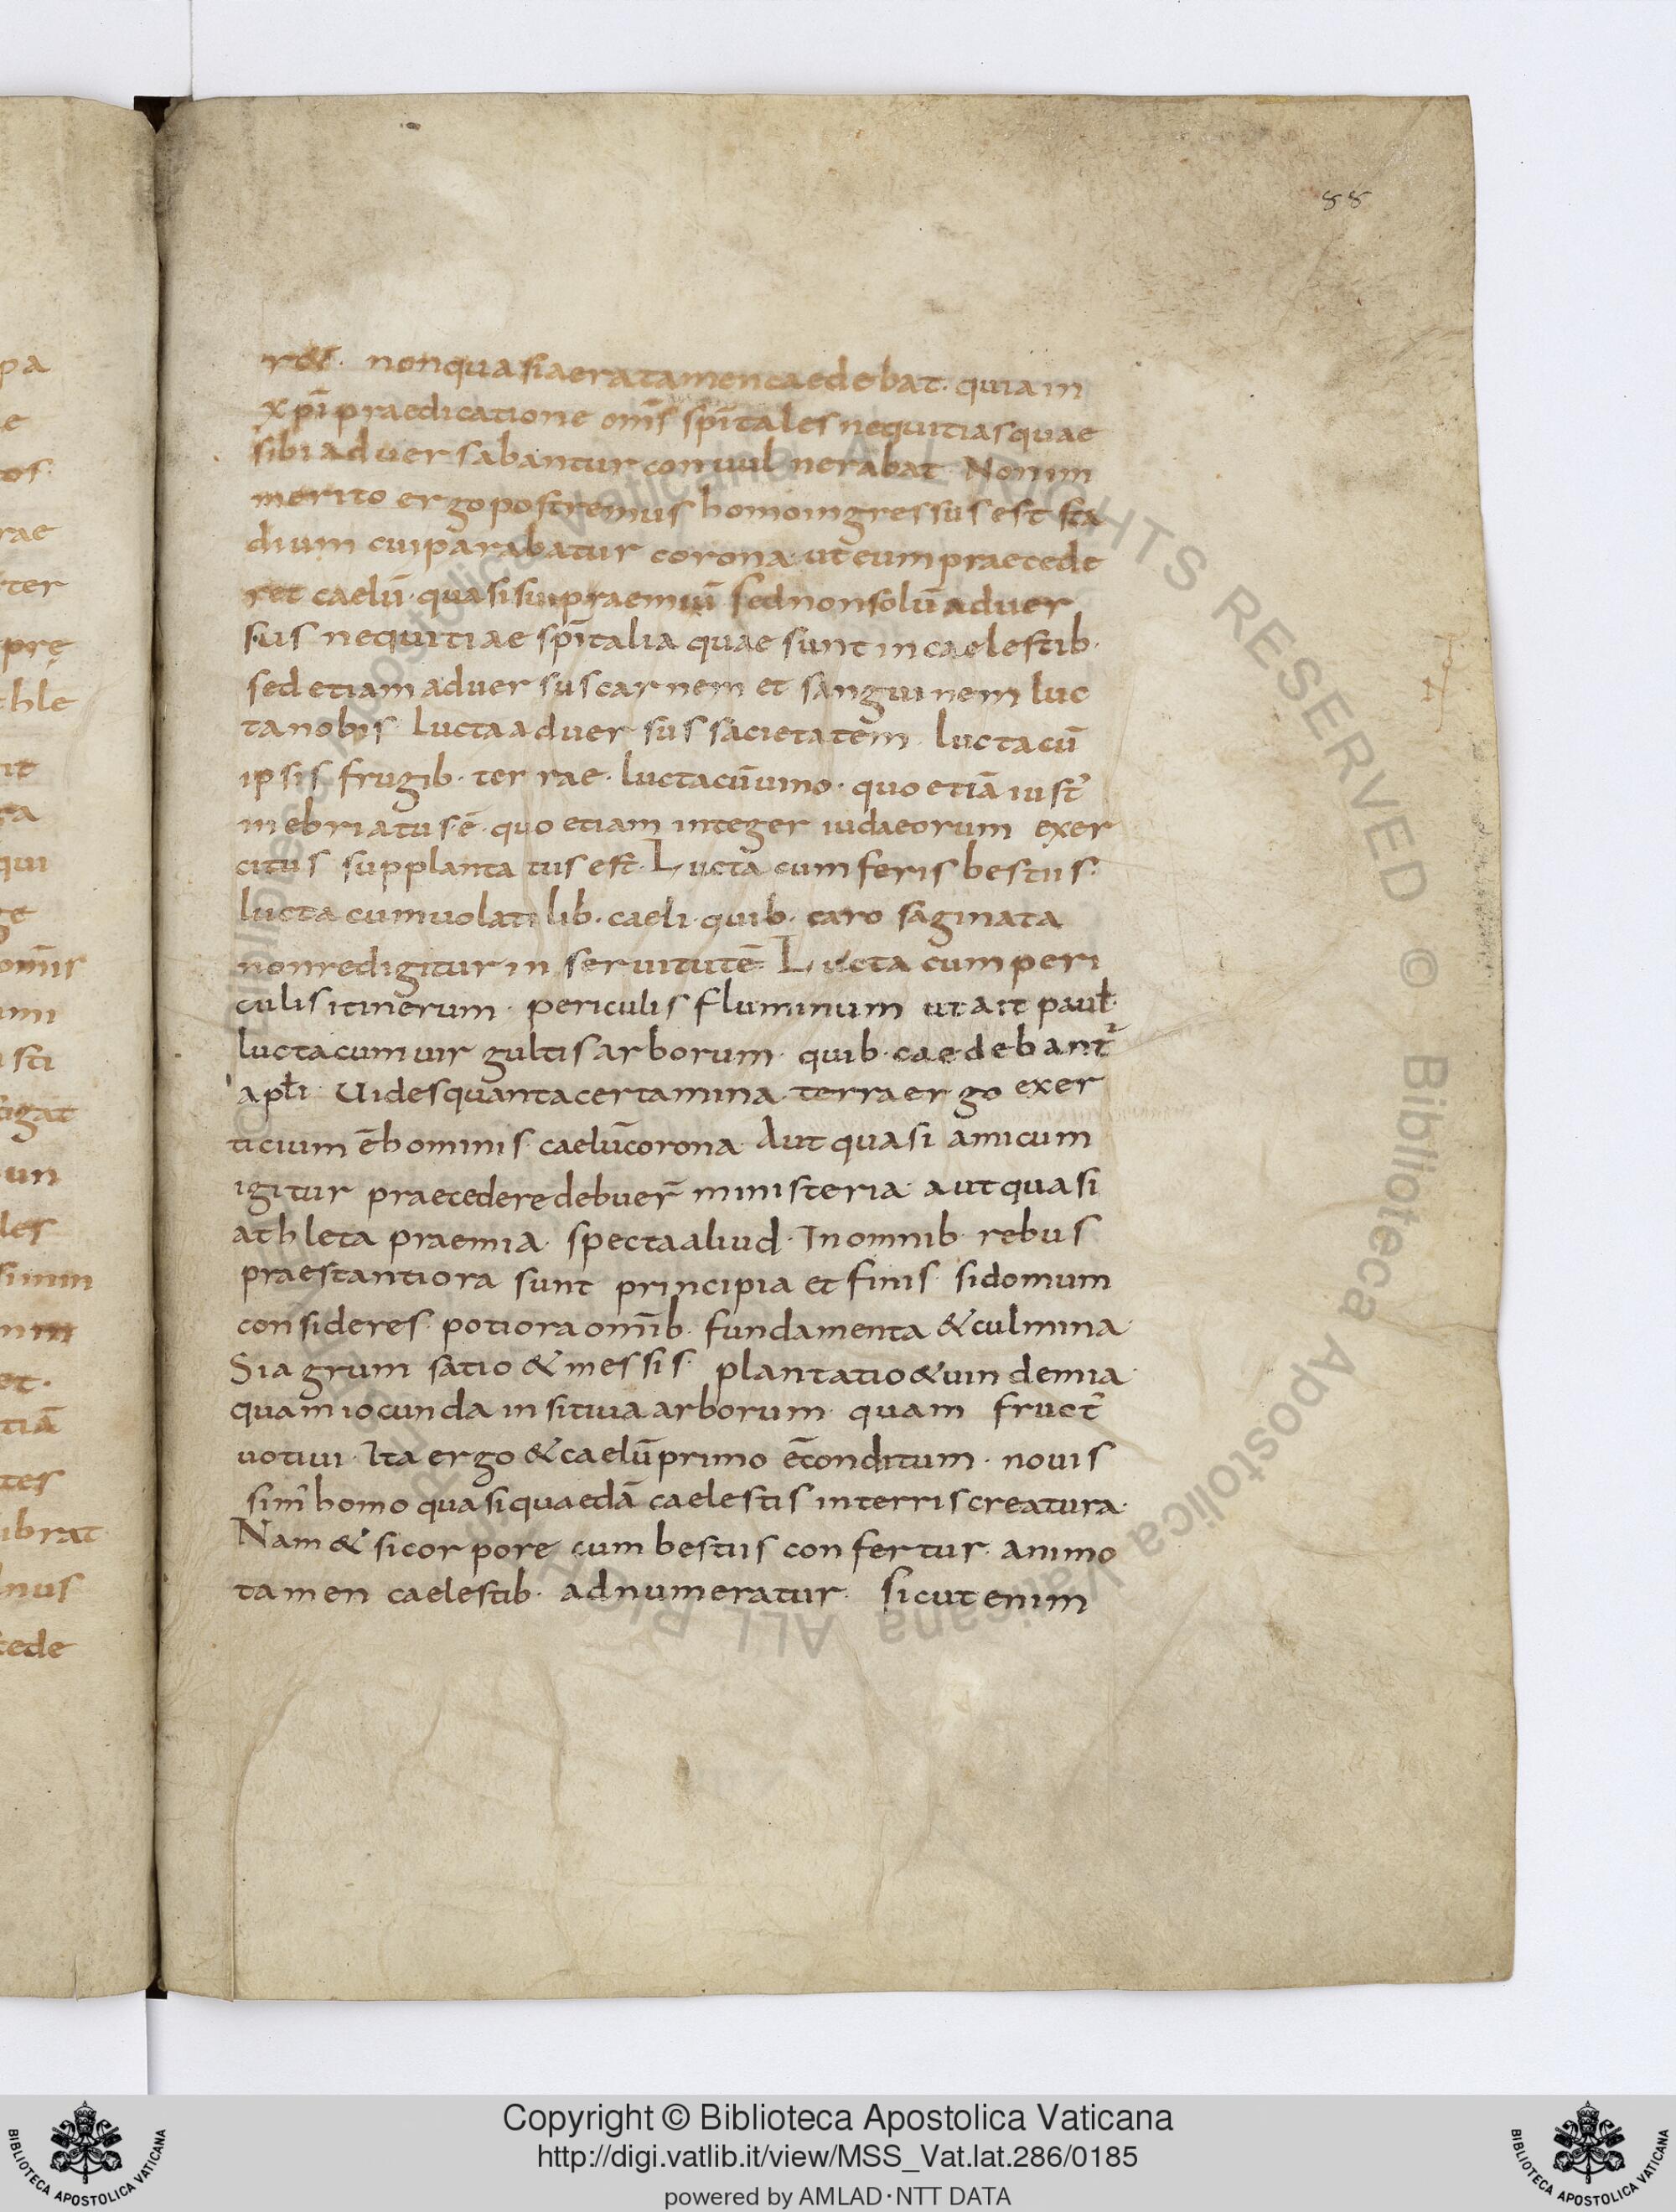 88
r&. non quasi aera tamen caedebat. quia in
xp̄i praedicatione om̄s sp̄itales nequitias quae
sibi adversabantur convulnerabat. Non im
merito ergo postremus homo ingressus est sta
dium cui parabatur corona. ut eum praecede
ret caelū. quasi sui praemiū. sed non solū adver
sus nequitiae sp̄italia quae sunt in caelestib.
sed etiam adversus carnem et sanguinem luc
ta nobis. Lucta adversus sacietatem. Lucta cū
ipsis frugib. terrae. lucta cū vino. quo etiā iust'
inebriatus ē. quo etiam integer iudaeorum exer
citus supplantatus est. Lucta cum feris bestiis.
lucta cum volatilib. caeli. quib. caro saginata
non redigitur in servitutē. Lucta cum peri
culis itinerum. periculis fluminum ut ait paul'.
lucta cum virgultis arborum. quib. caedebant'
apl̄i. Vides quanta certamina. terra ergo exer
ticium ē hominis. caelū corona. Aut quasi amicum
igitur praecedere debuer̄ ministeria. aut quasi
athleta praemia. specta aliud. In omnib. rebus
praestantiora sunt principia et finis. si domum
consideres. potiora om̄ib. fundamenta & culmina.
Si agrum satio & messis. plantatio & vindemia.
quam iocunda insitiva arborum. quam fruct'
votivi. Ita ergo & caelū primo ē conditum. novis
sim' homo quasi quaedā caelestis in terris creatura.
Nam & si corpore cum bestiis confertur. animo
tamen caelestib. adnumeratur. sicut enim
pa
e
tos.
rae
ter
pre
thle
it
ra
qui
ge
om̄is
imi
sti
tigat
un
les
simm
et.
tiā
tes
ibrat
nus
cede
Copyright © Biblioteca Apostolica Vaticana
http://digi.vatlib.it/view/MSS_Vat.lat.286/0185
powered by AMLAD·NTT DATA
BIBLIOTECA APOSTOLICA VATICANA
BIBLIOTECA APOSTOLICA VATICANA
© Biblioteca Apostolica Vaticana ALL RIGHTS RESERVED